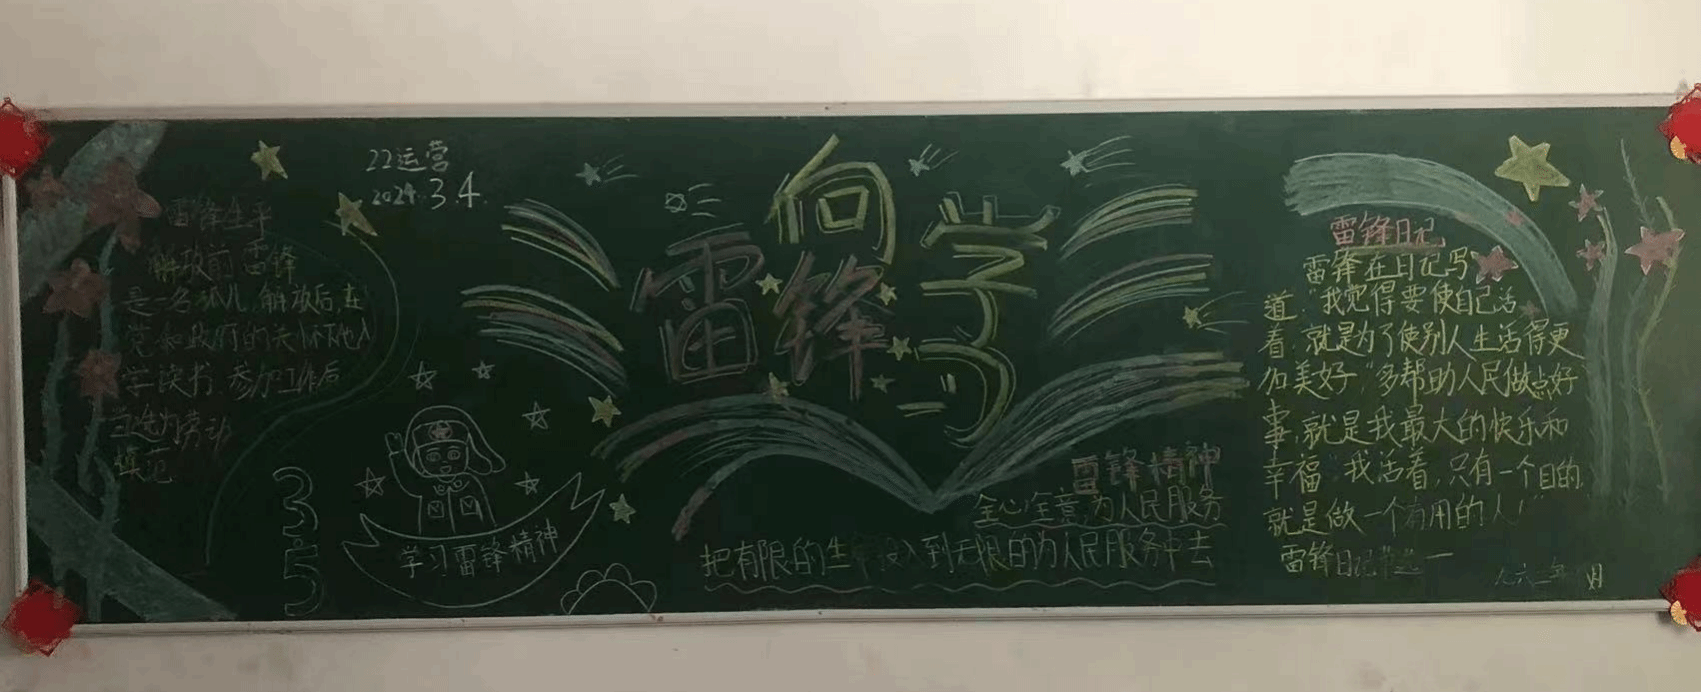 22运营
2024.3.4.
雷锋生平
解放前雷锋
是一名孤儿,解放后,在
党和政府的关怀下他入
学读书.参加工作后
当选为劳动
模范
3.5
学习雷锋精神
向
雷锋
学习
雷锋精神
全心全意为人民服务
把有限的生命投入到无限的为人民服务中去
雷锋日记
雷锋在日记写
道:"我觉得要使自己活
着,就是为了使别人生活得更
加美好"多帮助人民做点好
事,就是我最大的快乐和
幸福"我活着,只有一个目的,
就是做一个有用的人!"
雷锋日记
六二年 月